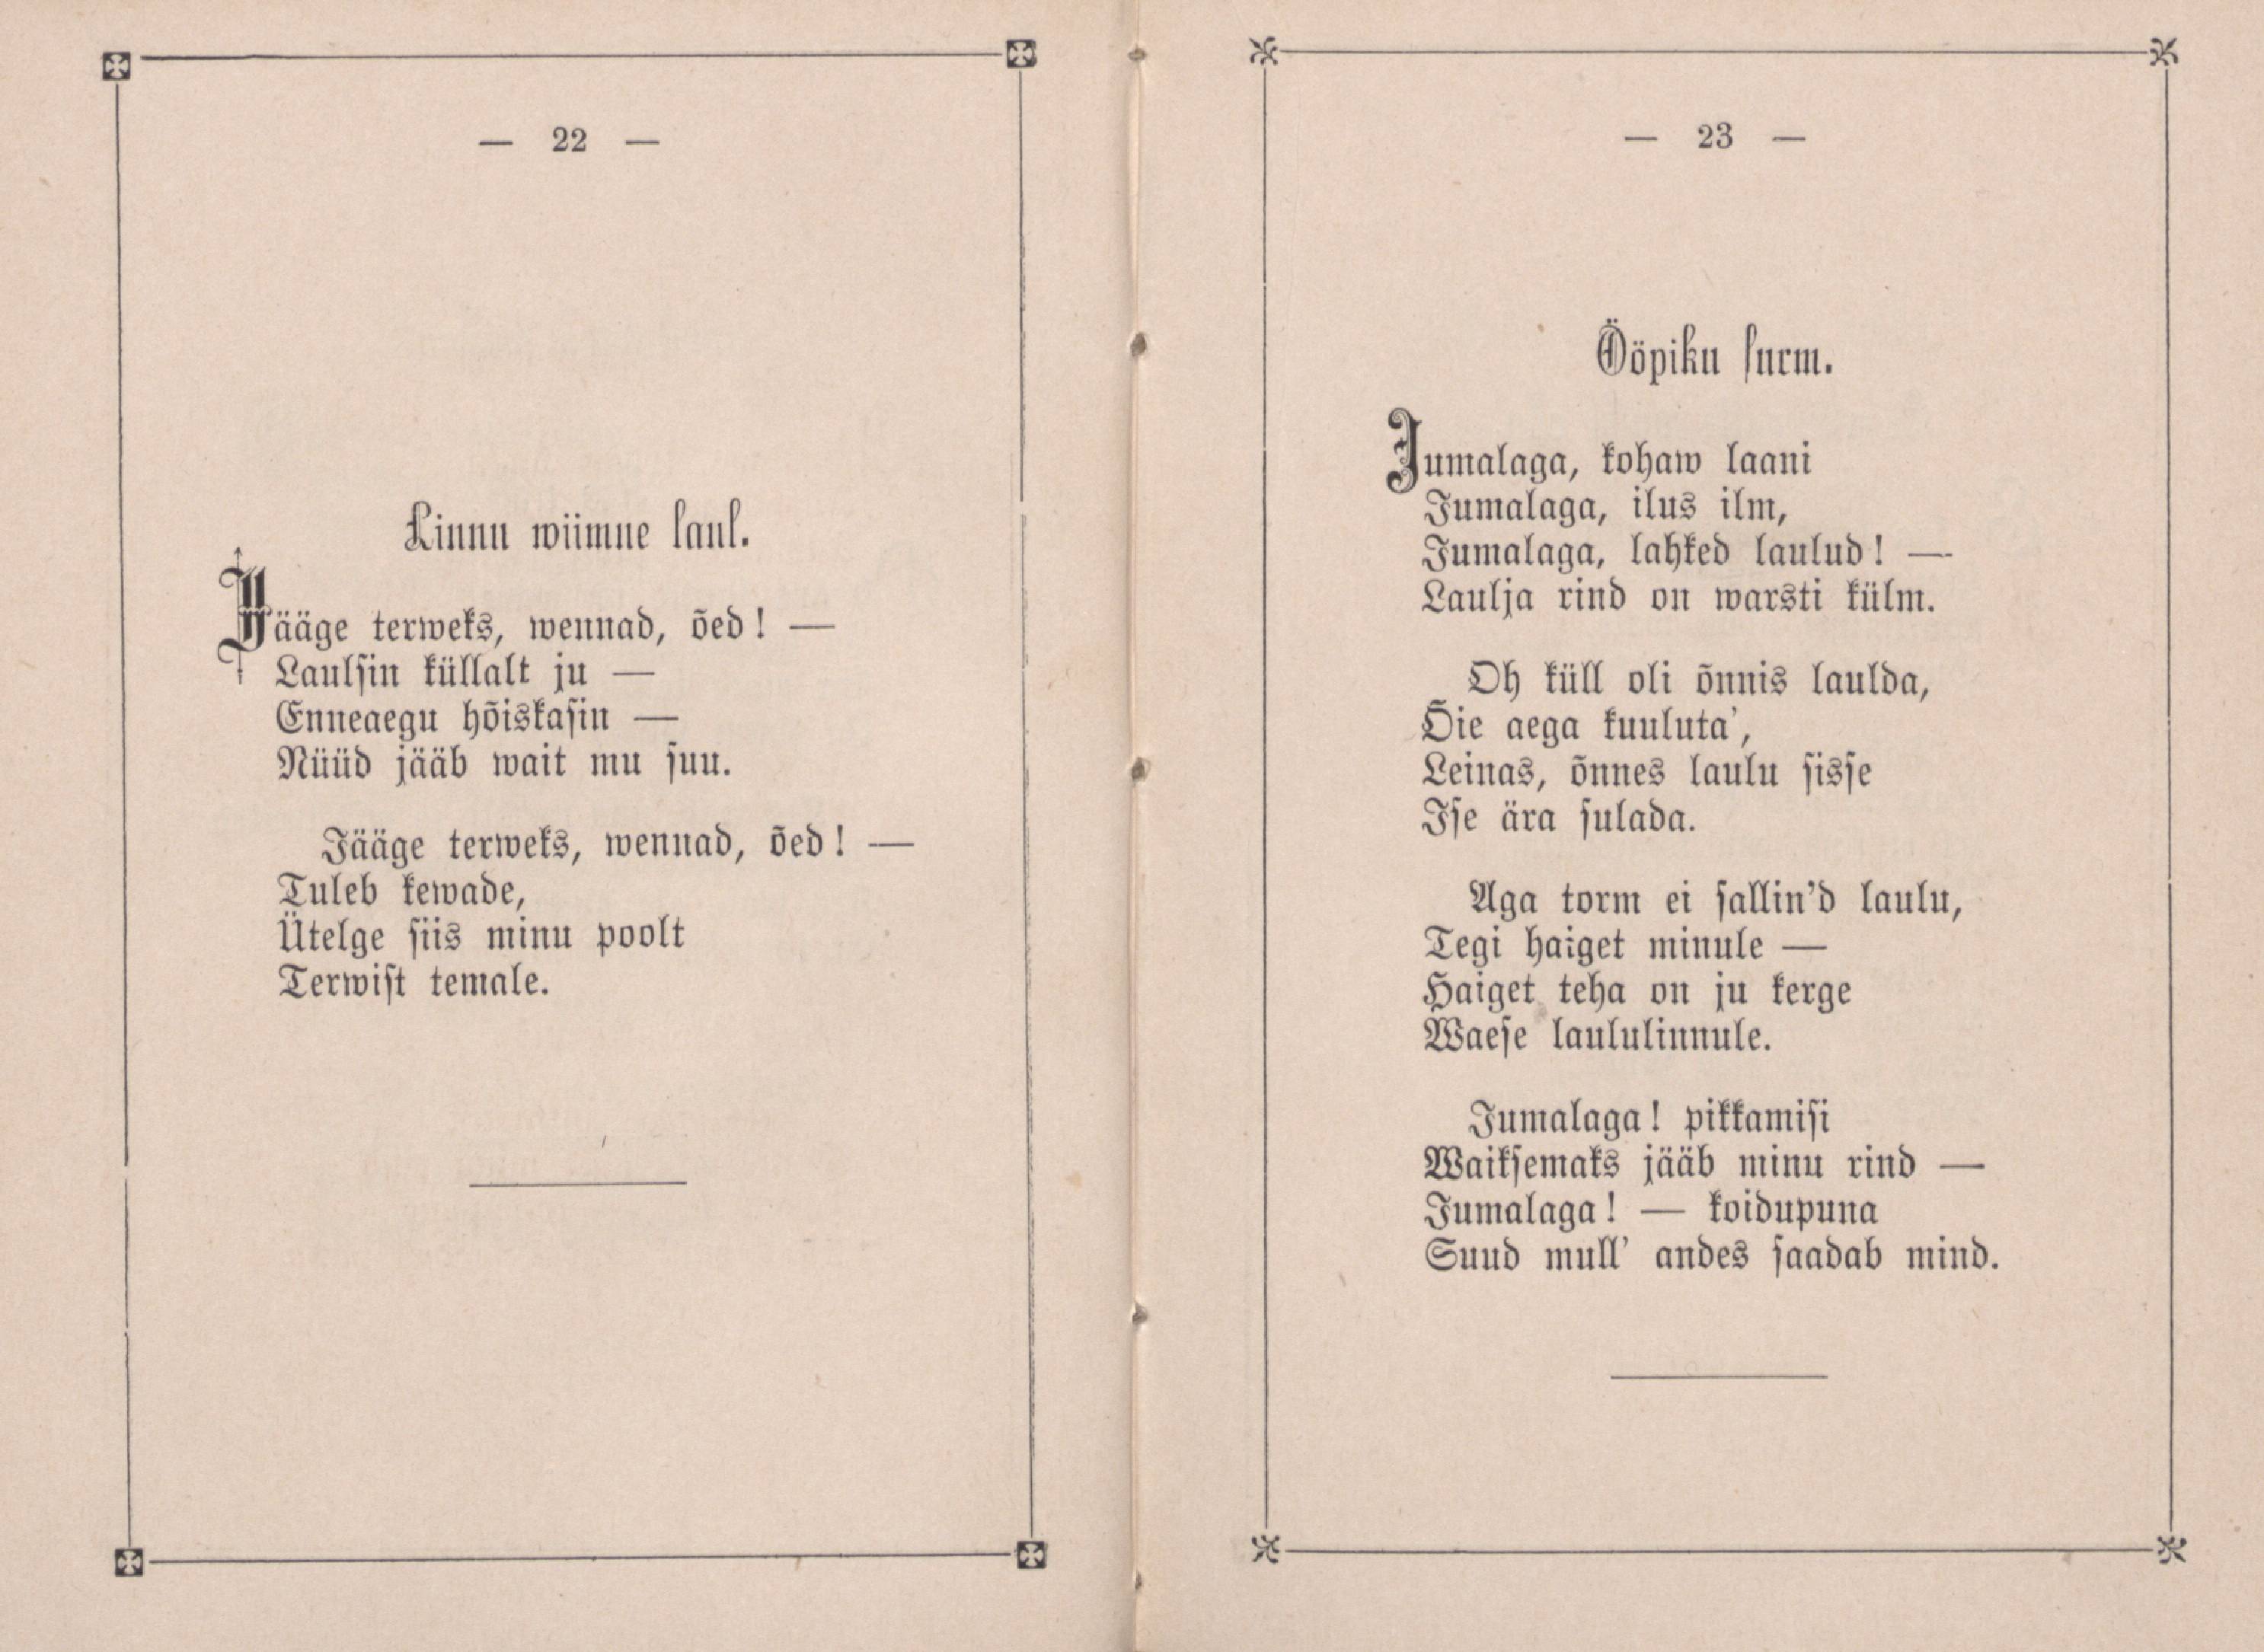 — 22 —
Linnu wiimne laul.
Jääge terweks, wennad, õed! —
Laulsin küllalt ju —
Enneaegu hõiskasin —
Nüüd jääb wait mu suu.
Jääge terweks, wennad, õed! —
Tuleb kewade,
Ütelge siis minu poolt
Terwist temale.
— 23 —
Ööpiku surm.
Jumalaga, kohaw laani
Jumalaga, ilus ilm,
Jumalaga, lahked laulud! —
Laulja rind on warsti külm.
Oh küll oli õnnis laulda,
Õie aega kuuluta',
Leinas, õnnes laulu sisse
Ise ära sulada.
Aga torm ei sallin'd laulu,
Tegi haiget minule —
Haiget teha on ju kerge
Waese laululinnule.
Jumalaga! pikkamisi
Waiksemaks jääb minu rind —
Jumalaga! — koidupuna
Suud mull' andes saadab mind.